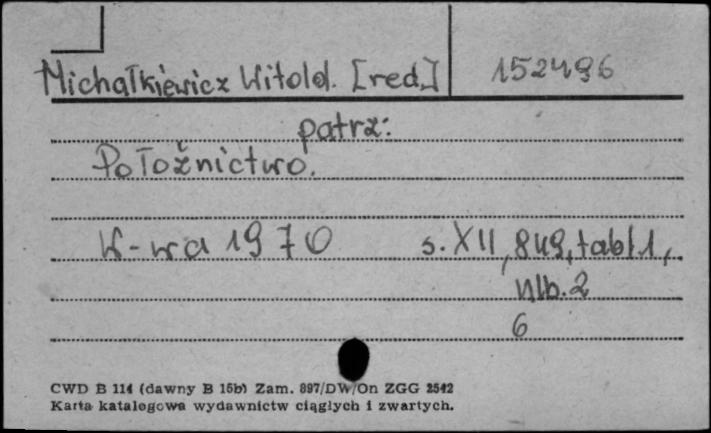 Michałkiewicz Witold. [red.] 152496
patrz:
Położnictwo.
W-wa 1970 s. XII, 849, tabl 1,
nlb. 2
6
CWD B 114 (dawny B 15b) Zam. 897/DW/On ZGG 2542
Karta katalogowa wydawnictw ciągłych i zwartych.